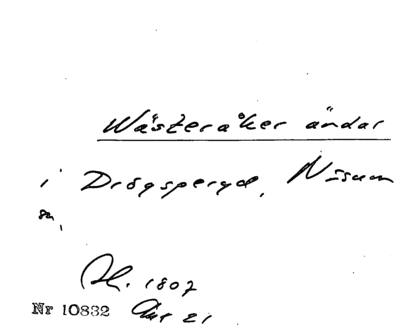 Wästeråker ändar
i Drögsperyd, Nisum
sn,
Sk. 1807
Nr 10832 Akt 21